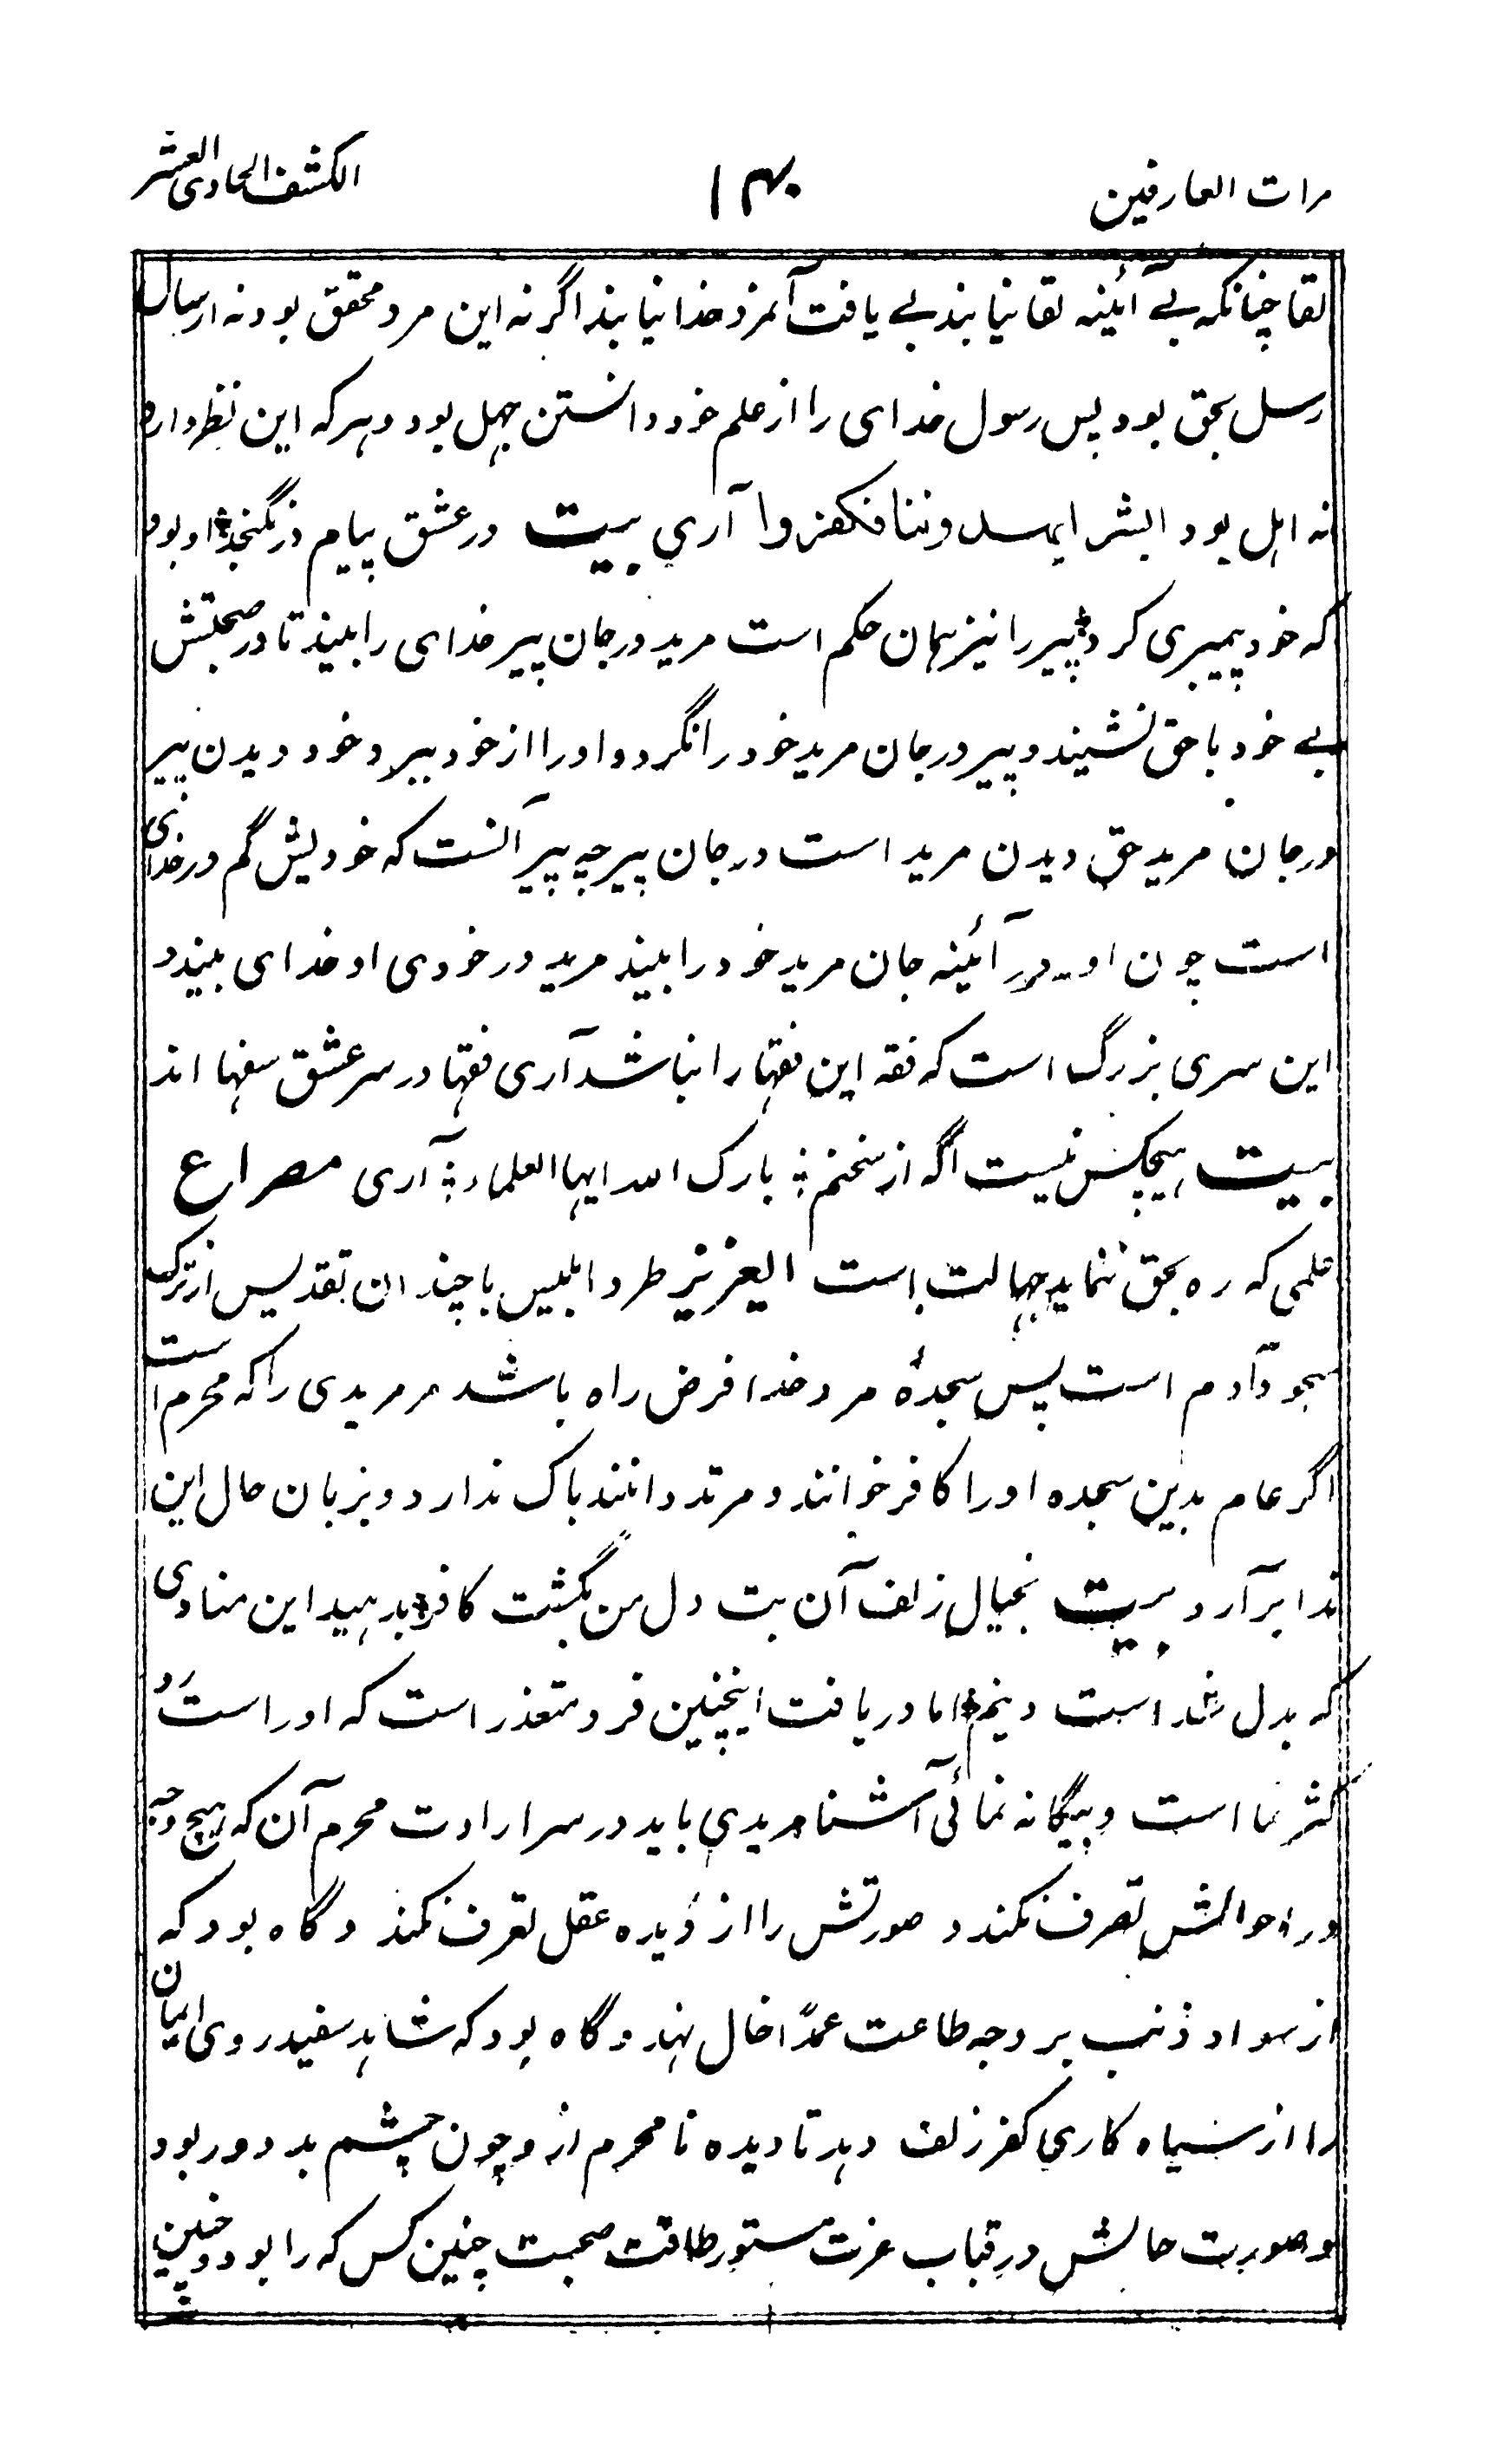 مرات العارفین
۱۴۰
الکشف الحادی العشر
لقا چنانکه بے آئینه لقا نیابند بے یافت آنمرد خدا نیابند اگر نه این مرد محقق بود نه ارسال
رسل بحق بود پس رسول خدای را از علم خود دانستن جهل بود و هر که این نظر دارد
نه اهل بود ابشر یهدوننا فکفروا آری بیت در عشق پیام در نگنجد او بود
که خود پیمبری کرد پیر را نیز همان حکم است مرید در جان پیر خدای را بیند تا در صحبتش
بے خود باحق نشیند و پیر در جان مرید خود را نگرد و او را از خود ببرد خود دیدن پیر
در جان مرید حق دیدن مرید است در جان پیر چه پیر آنست که خودیش گم در خدای
است چون او در آئینه جان مرید خود را بیند مرید در خودی او خدای بیند و
این سری بزرگ است که فقه این فقها را نباشد آری فقها در سر عشق سفها اند
بیت هیچکس نیست اگه از سخنم بارک الله ایها العلماء آری مصراع
علمی که ره بحق ننماید جهالت است العزیز طرد ابلیس با چندان تقدیس از ترک
سجود آدم است پس سجدۀ مرد خدا فرض راه باشد مر مریدی را که محرم است
اگر عام بدین سجده او را کافر خوانند و مرتد دانند باک ندارد و بزبان حال این
ندا برآرد بیت بخیال زلف آن بت دل من بگشت کافر بدهید این منادی
که بدل شد است دینم اما دریافت اینچنین فرد متعذر است که او راست رو
کثر نما است و بیگانه نمائی آشنا مریدی باید در سر ارادت محرم آن که هیچ وجه
در احوالش تصرف نکند و صورتش را از دیده عقل تعرف نکند و گاه بود که
از سواد ذنب بر وجه طاعت عمدًا خال نهد و گاه بود که شاهد سفید روی ایمان
را از سیاه کاری کفر زلف دهد تا دیده نامحرم از و چون چشم بد دور بود
و صورت حالش در قباب عزت مستور طاقت صحبت چنین کس که را بود و چنین